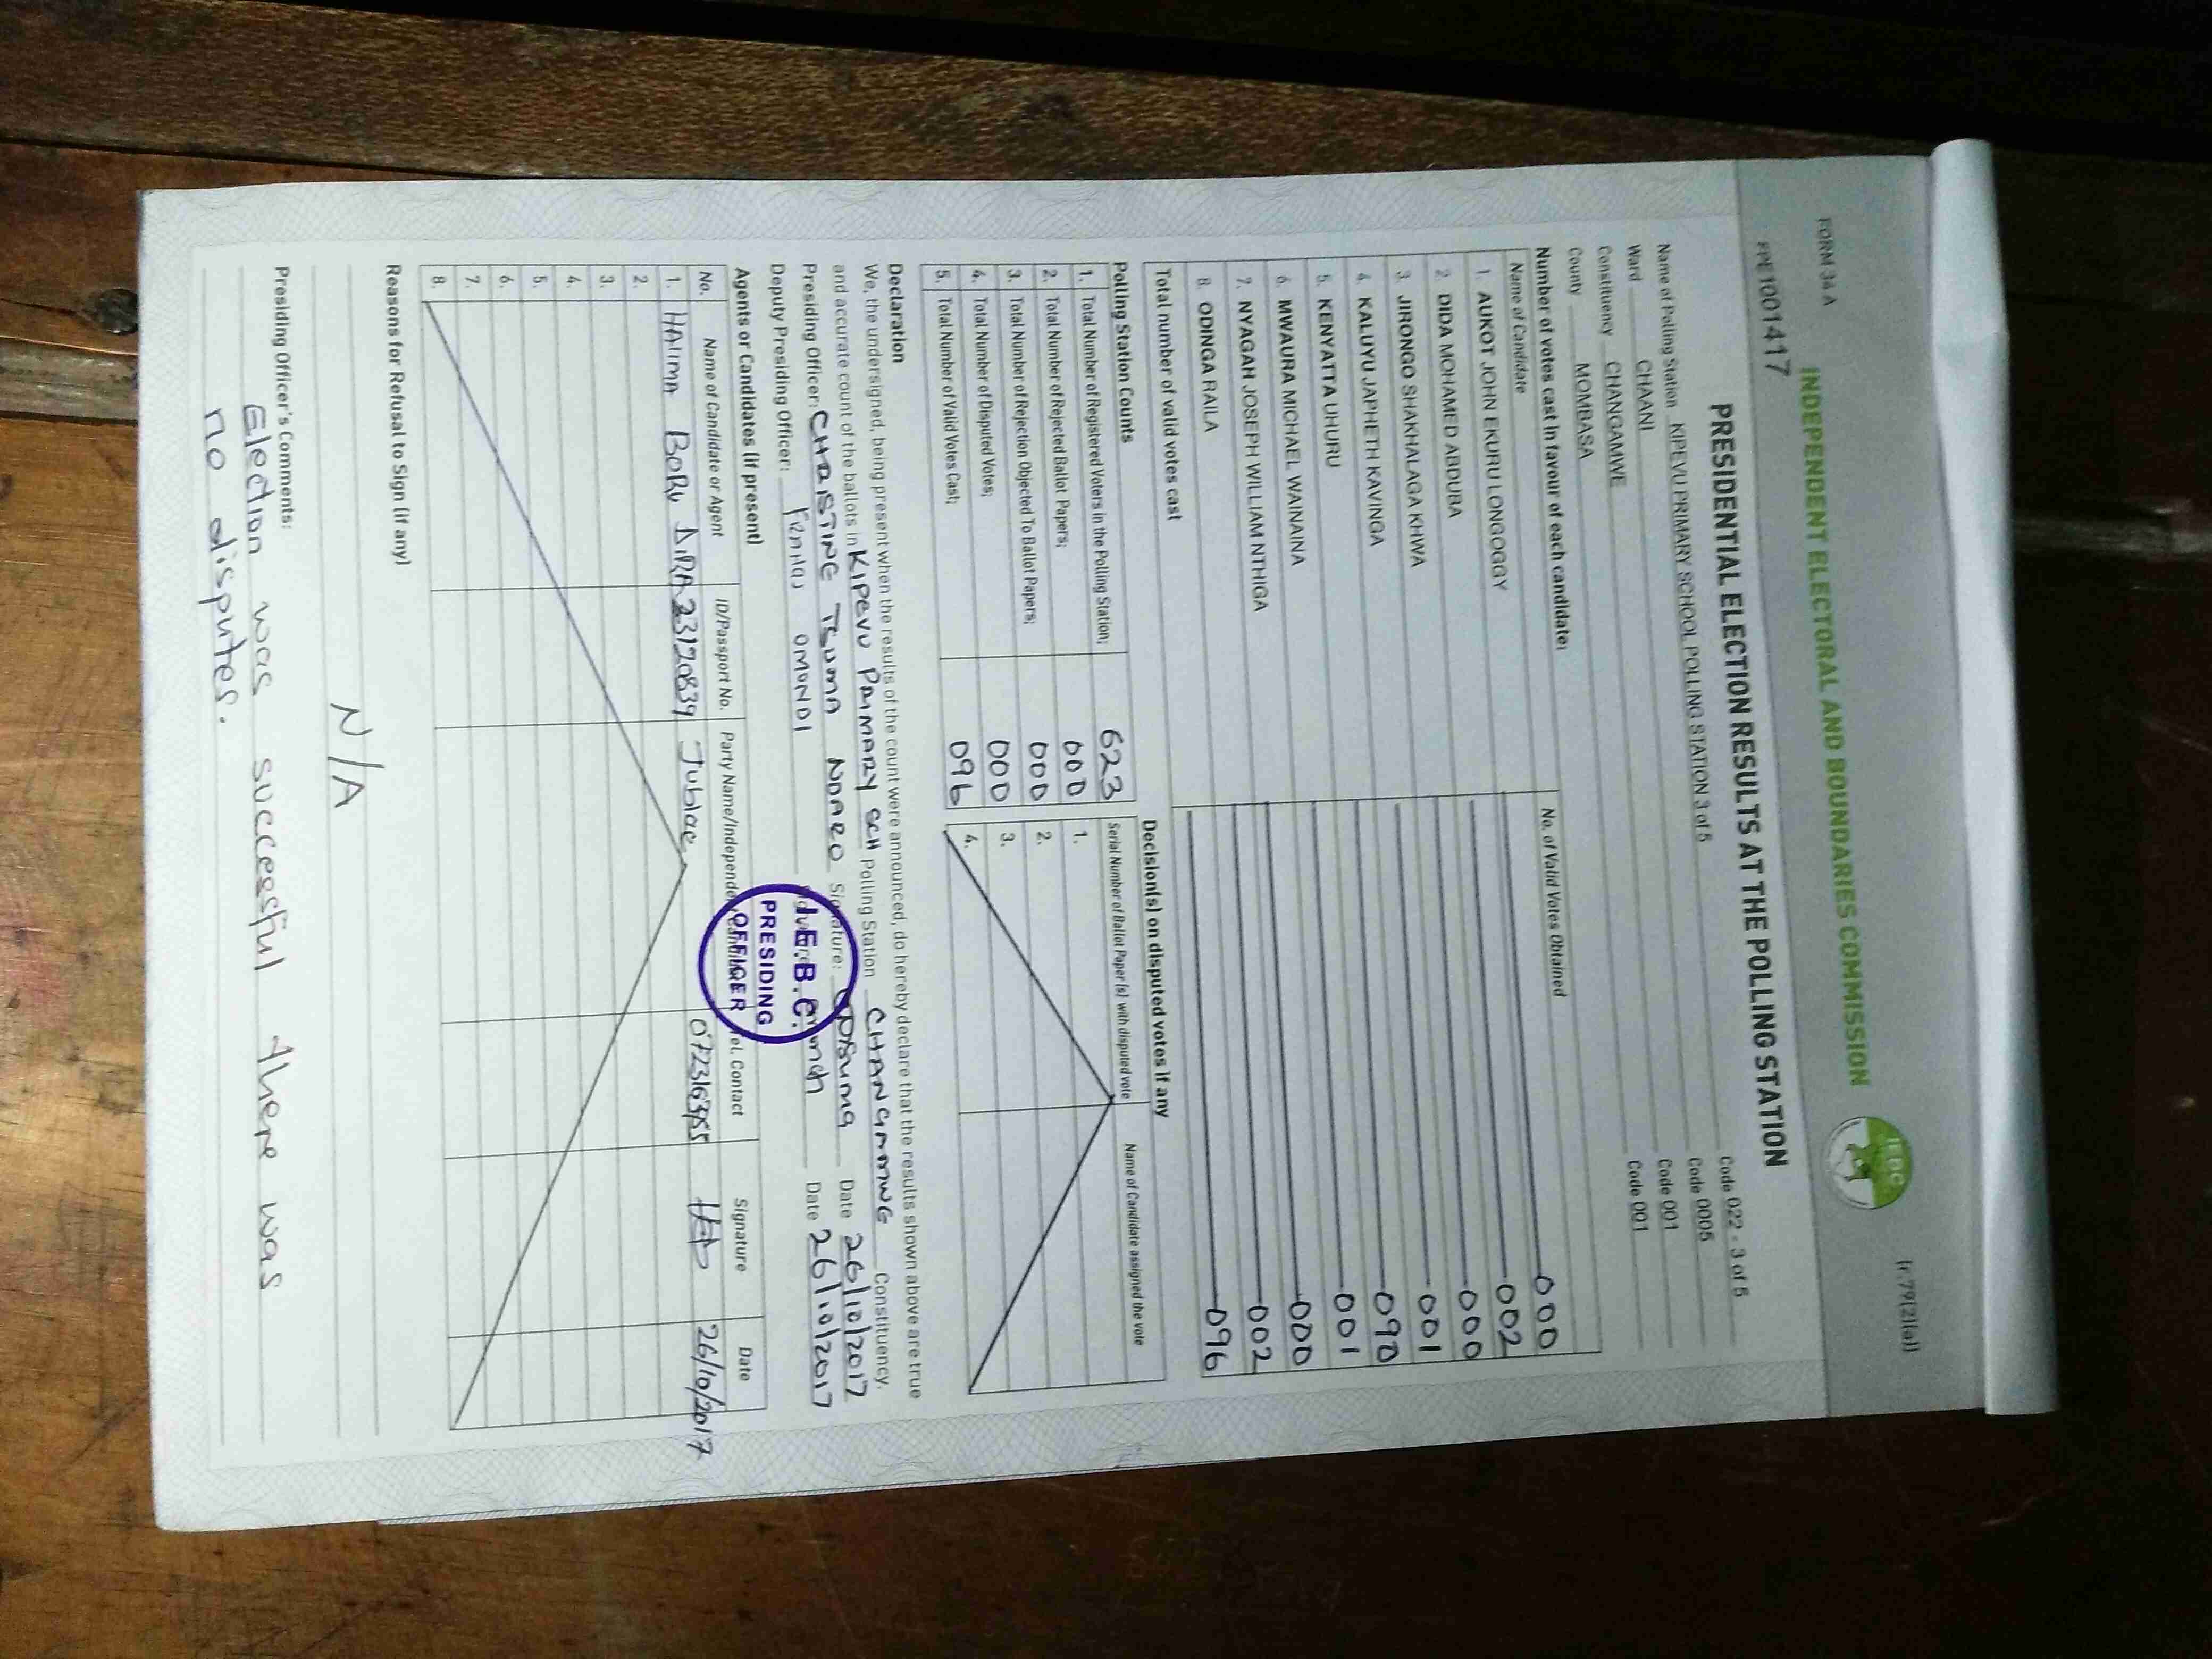 FORM 34 A
(r.79(2)(a))
INDEPENDENT ELECTORAL AND BOUNDARIES COMMISSION
IEBC
FPE1001417
PRESIDENTIAL ELECTION RESULTS AT THE POLLING STATION
Name of Polling Station KIPEVU PRIMARY SCHOOL POLLING STATION 3 of 5 Code 022 - 3 of 5
Ward CHAANI Code 0005
Constituency CHANGAMWE Code 001
County MOMBASA Code 001
Number of votes cast in favour of each candidate:
Name of Candidate No. of Valid Votes Obtained
1. AUKOT JOHN EKURU LONGOGGY 000
2. DIDA MOHAMED ABDUBA 002
3. JIRONGO SHAKHALAGA KHWA 000
4. KALUYU JAPHETH KAVINGA 001
5. KENYATTA UHURU 090
6. MWAURA MICHAEL WAINAINA 001
7. NYAGAH JOSEPH WILLIAM NTHIGA 000
8. ODINGA RAILA 002
Total number of valid votes cast 096
Polling Station Counts
1. Total Number of Registered Voters in the Polling Station; 623
2. Total Number of Rejected Ballot Papers; 000
3. Total Number of Rejection Objected To Ballot Papers; 000
4. Total Number of Disputed Votes; 000
5. Total Number of Valid Votes Cast; 096
Decision(s) on disputed votes if any
Serial Number of Ballot Paper (s) with disputed vote Name of Candidate assigned the vote
1.
2.
3.
4.
Declaration
We, the undersigned, being present when the results of the count were announced, do hereby declare that the results shown above are true
and accurate count of the ballots in KIPEVU PRIMARY SCH Polling Station CHANGAMWE Constituency.
Presiding Officer: CHRISTINE TSUMA NDARO Signature: Date 26/10/2017
Deputy Presiding Officer: OMONDI Date 26/10/2017
I.E.B.C.
PRESIDING
OFFICER
Agents or Candidates (if present)
No. Name of Candidate or Agent ID/Passport No. Party Name/Independent Tel. Contact Signature Date
1. HAIMA BORU DIRA 23120839 Jublae 26/10/2017
2.
3.
4.
5.
6.
7.
8.
Reasons for Refusal to Sign (if any)
N/A
Presiding Officer's Comments:
Election was successful there was
no disputes.